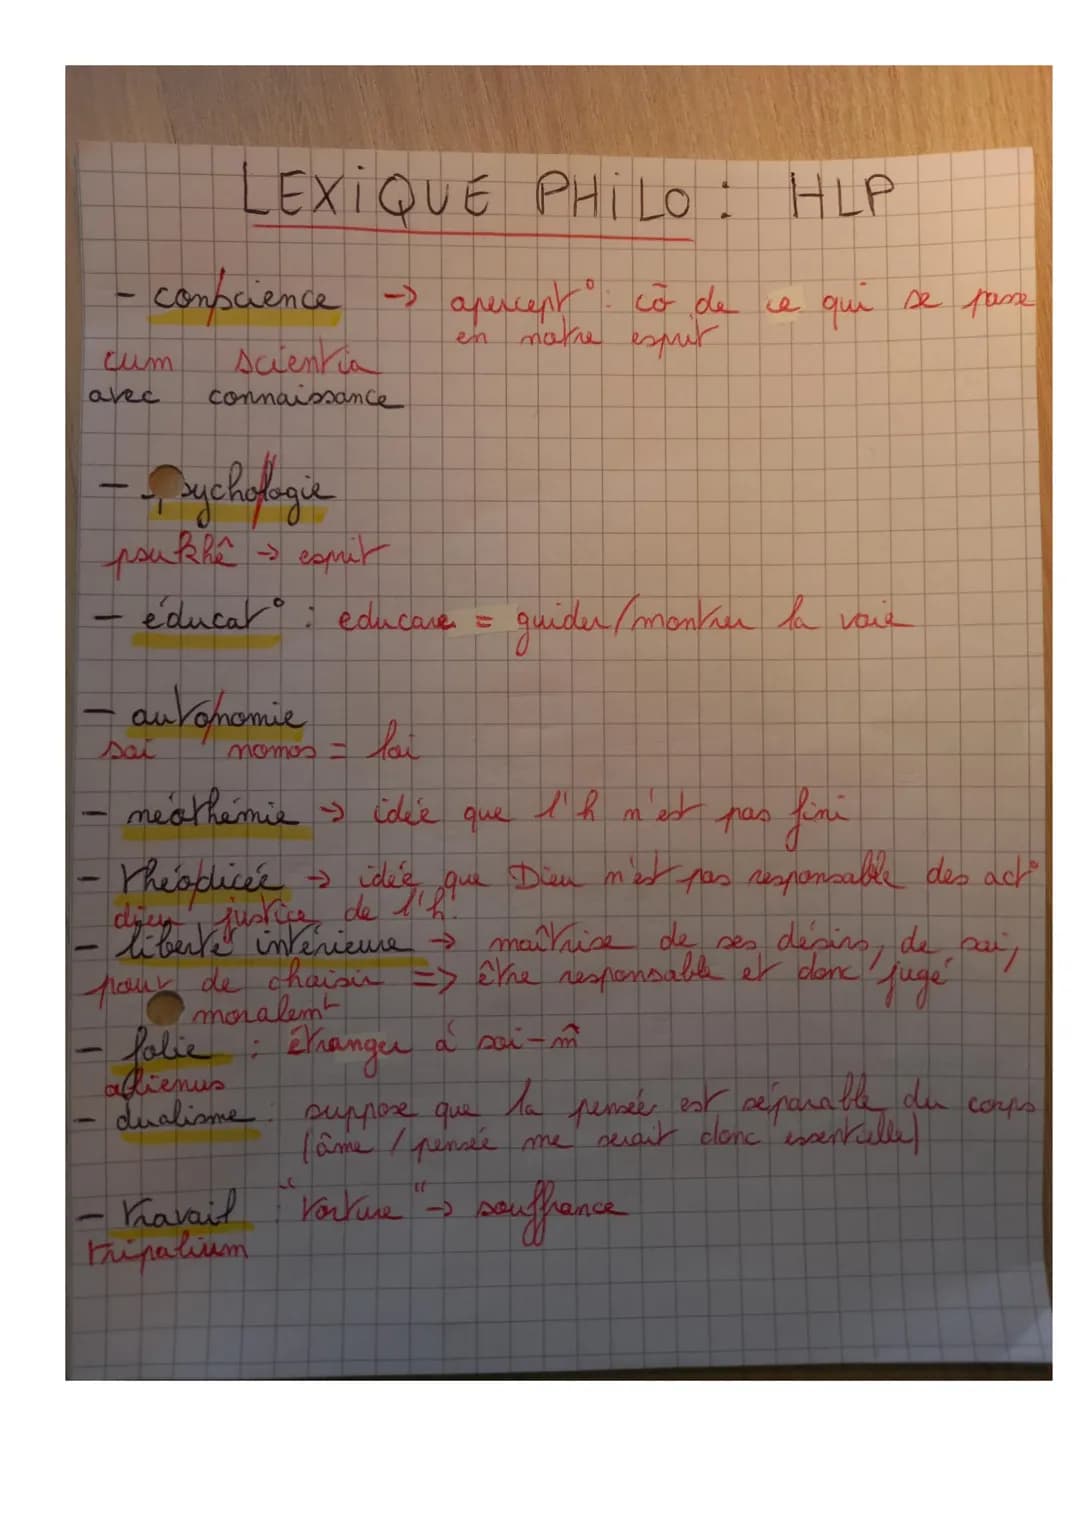 LEXIQUE PHILO : HLP
- conscience -> apercept° : cō de ce qui se passe
en notre esprit
cum scientia
avec connaissance
- psychologie
psukhê -> esprit
- éducat° : educare = guider/montrer la voie
- autonomie
soi nomos = loi
- néothémie -> idée que l'h n'est pas fini
- théodicée -> idée que Dieu n'est pas responsable des act°
dieu justice de l'h.
- liberté intérieure -> maîtrise de ses désirs, de soi,
pour de choisir => être responsable et donc jugé
moralemt
- folie : étranger à soi-m̂
alienus
- dualisme : suppose que la pensée est séparable du corps
(âme / pensée me serait donc essentielle)
- travail : "torture" -> souffrance
tripalium